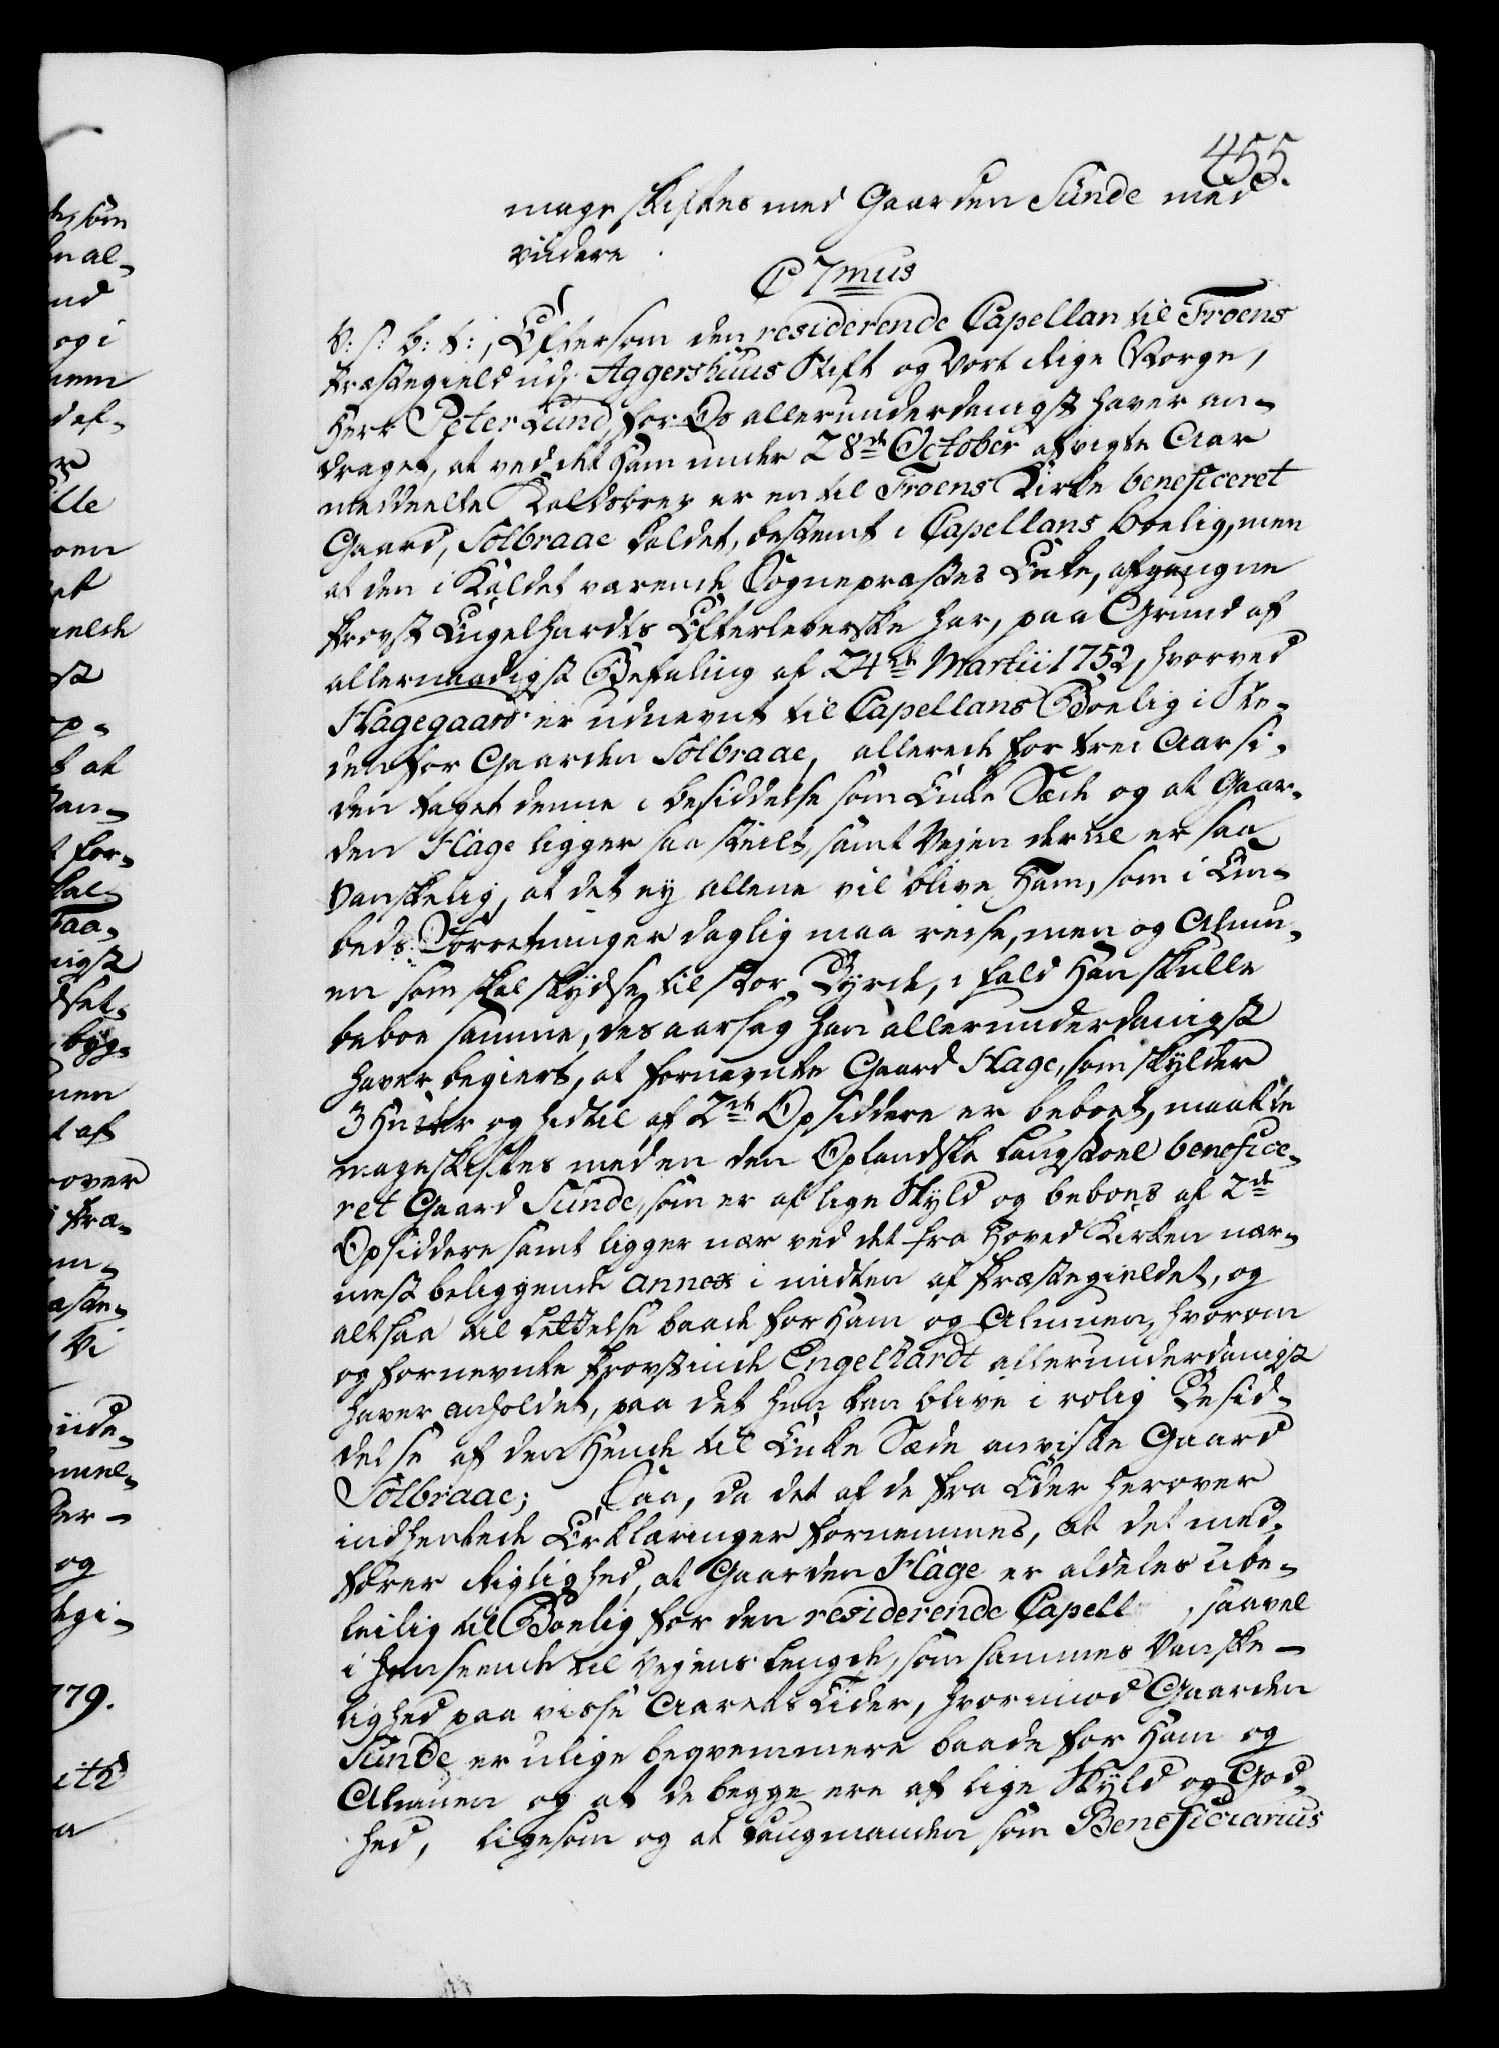 455.
mageskiftes med Gaarden Sunde med
viidere.
C 7mus
V: S: G: T:, Eftersom den residerende Capellan til Froens
Præstegield udj Aggershuus Stift og Vort Rige Norge,
Herr Peter Lund, for Os allerunderdanigst haver an-
draget, at ved det Ham under 28de October afvigte Aar
meddeelte Kaldsbrev er en til Froens Kirke beneficeret
Gaard, Solbraae kaldet, bestemt i Capellans boelig, men
at den i Kaldet værende Sognepræstes Enke, afgangne
Provst Engelhardts Efterleverske har, paa Grund af
allernaadigst Befaling af 24de Martii 1752, hvorved
Hagegaard er udnevnt til Capellans Boelig i Ste-
den for Gaarden Solbraae, allerede for trei Aar si-
den taget denne i besiddelse som Enke Sæde og at Gaar-
den Hage ligger saa skeels, samt Vejen dertil er saa
vanskelig, at det ej allene vil blive Ham, som i Em-
beds Forretninger daglig maa reise, men og Almu-
en som skal skydse til stor Byrde, i fald Han skulle
beboe samme, desaarsag han allerunderdanigst
haver begiert, at fornevnte Gaard Hage, som skylder
3 Huder og hidtil af 2de Opsiddere er beboet, maatte
mageskiftes med en den Oplandske Laugstoel benefice-
ret Gaard Sunde, som er af lige Skyld og beboes af 2de
Opsiddere samt ligger nær ved det fra Hoved Kirken nær-
mest beliggende annex i midten af Præstegieldet, og
altsaa til Lettelse baade for Ham og Almuen, hvorom
og fornevnte Provstinde Engelhardt allerunderdanigst
haver anholdet, paa det hun kan blive i rolig Besid-
delse af den Hende til Enke Sæde anviste Gaard
Solbraae; Saa, da det af de fra Eder herover
indhentede Erklæringer fornemmes, at det med-
fører Rigtighed, at Gaarden Hage er aldeles ube-
leilig til Boelig for den residerende Capell , saavel
i henseende til Vejens Længde, som sammes Vanske-
lighed paa visse Aarets Tider, hvorimod Gaarden
Sunde er ulige beqvemmere baade for Ham og
Almuen og at de begge ere af lige Skyld og God-
hed, ligesom og at Laugmanden som Beneficiarius